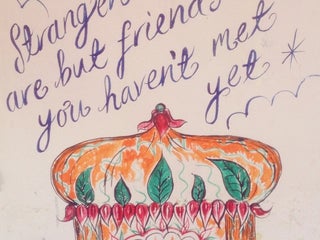 Strangers
are but friends
you haven't met
yet